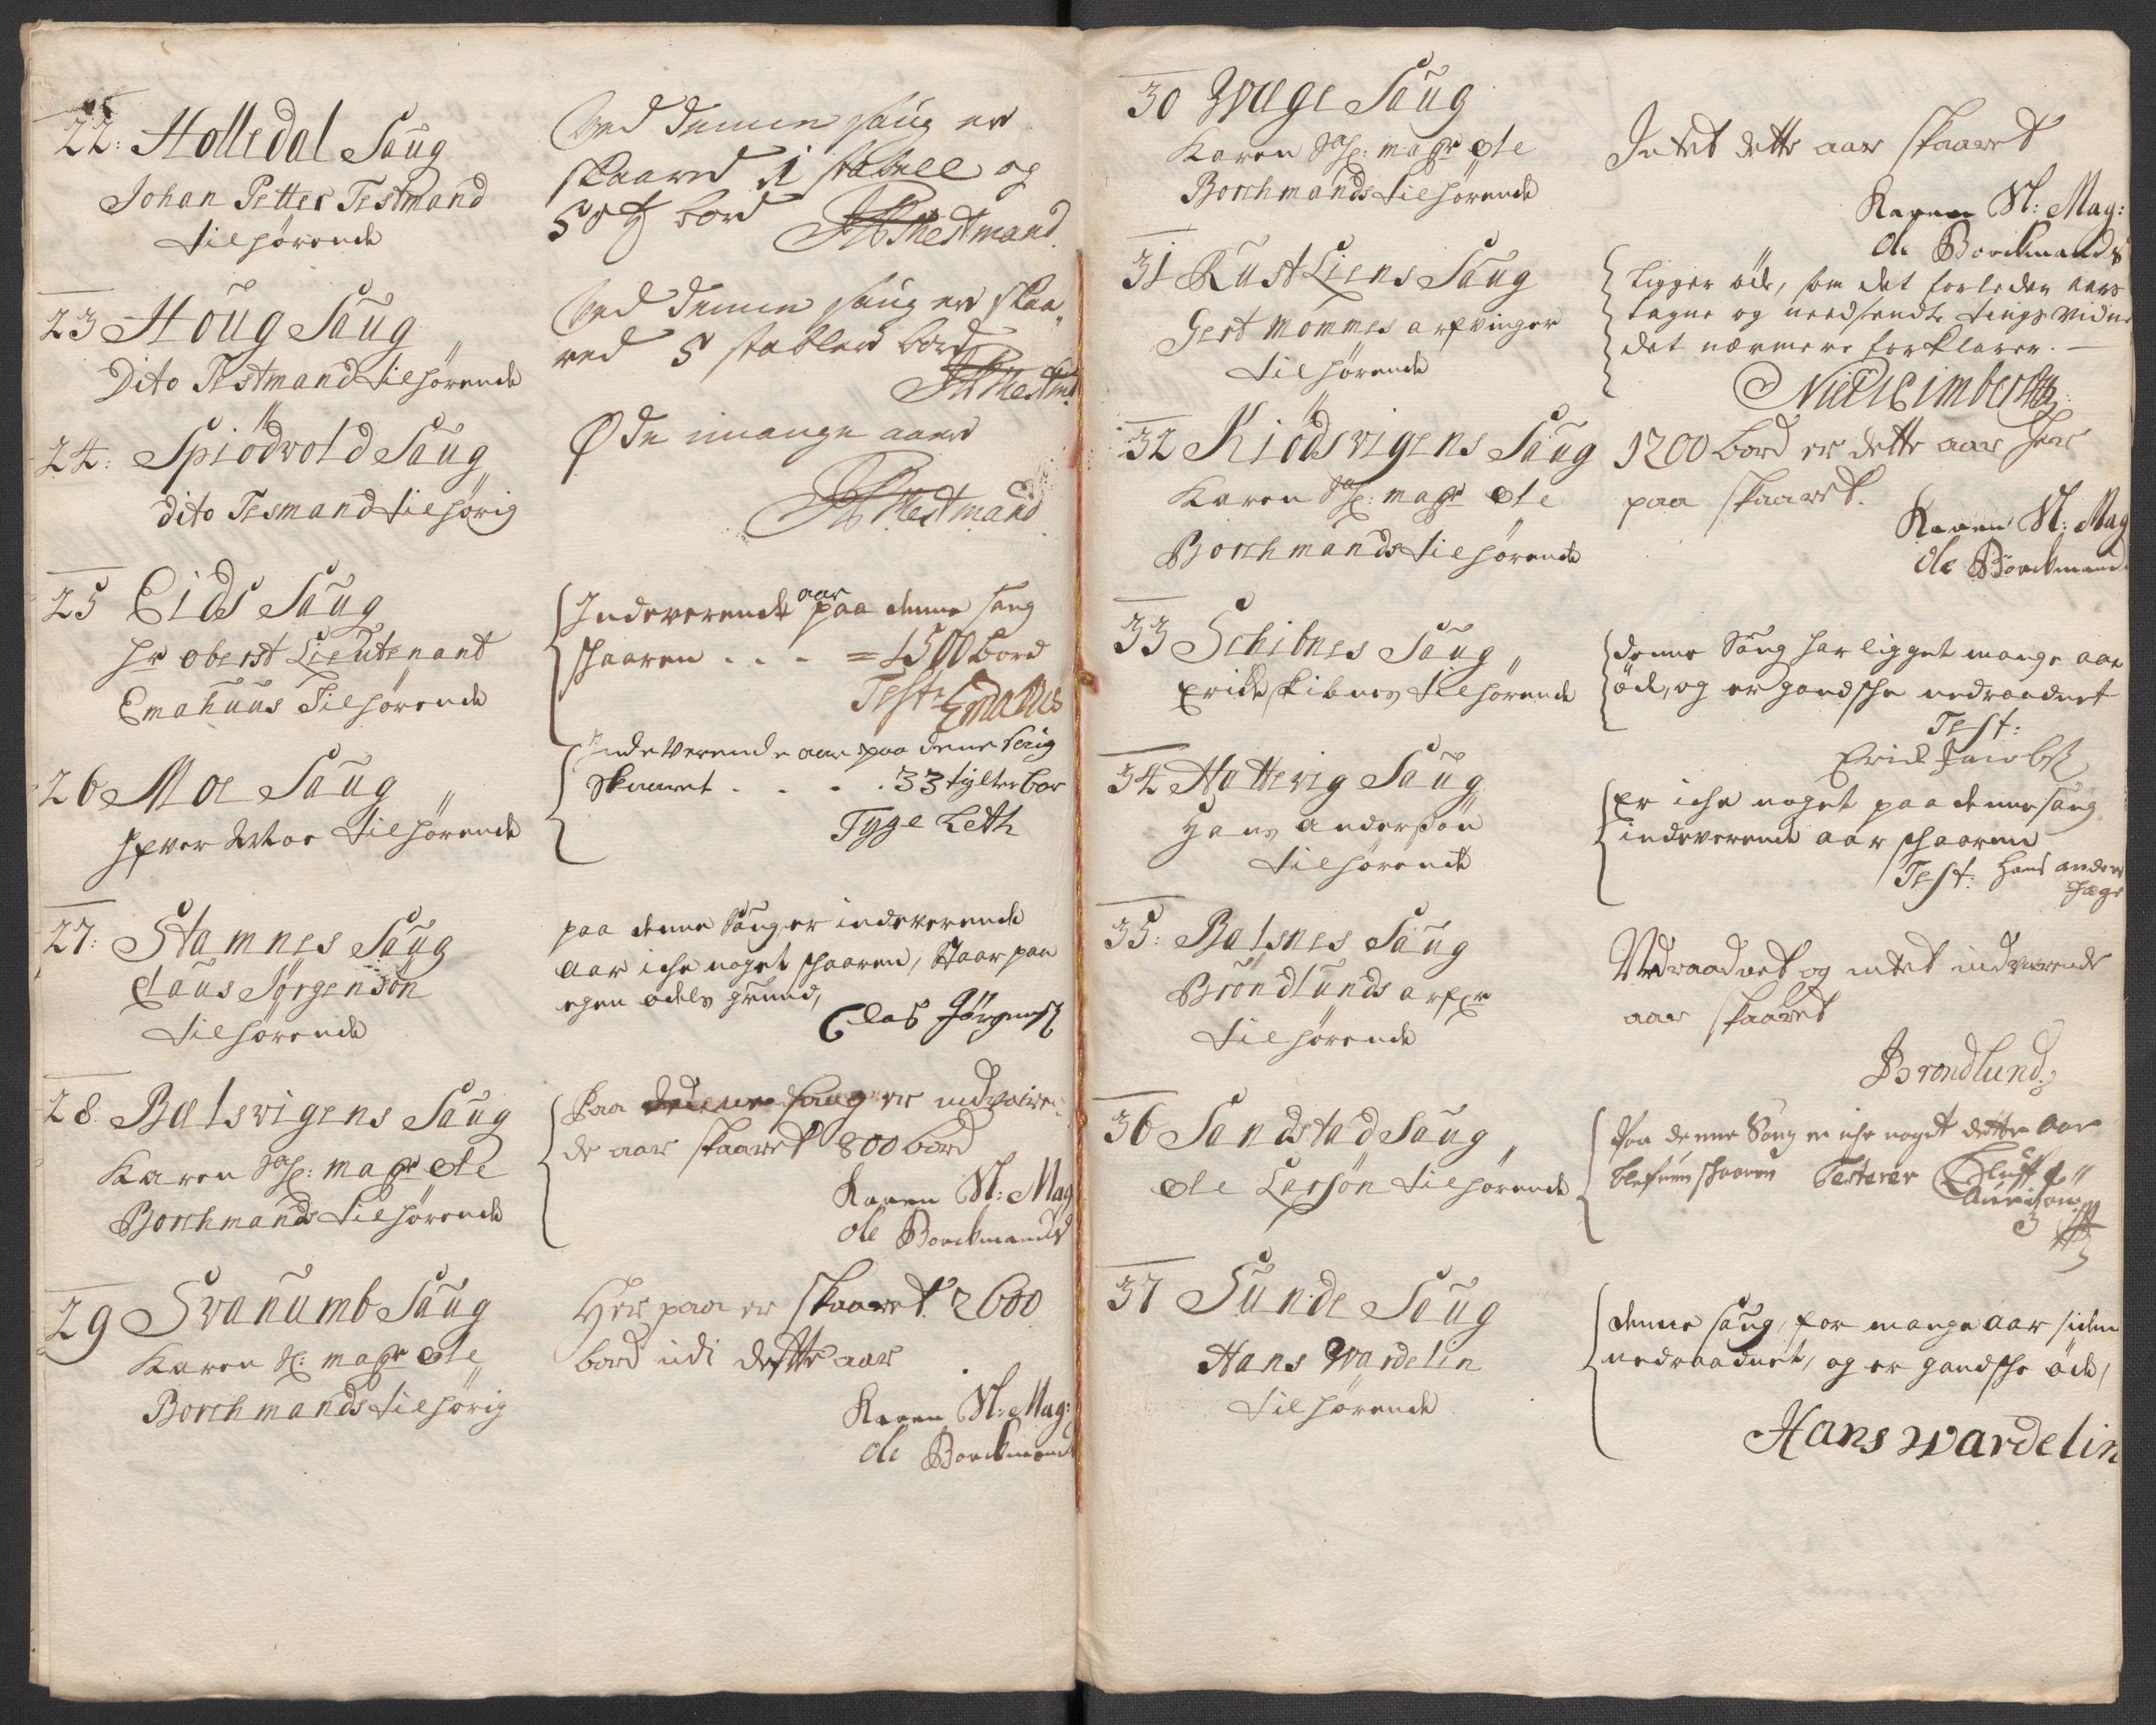 22: Holledal Saug
Johan Petter Testmand
tilhørende
Ved denne saug er
skaaret 1 stabell og
50 tt bord JPThestmand
23 Houg Saug
Dito Testmand tilhørende
Ved denne saug er skaa„
red 5 stabler bord
JPThestmd
24: Spiödvold Saug
dito Tesmand tilhörig
Øde i mange aaer
JPThestmand
25 Eids Saug
Hr oberst Lieutenant
Emahuus Tilhörende
Indeverende aar paa denne saug
skaaren . . . = 1500 bord
Test Emahus
26 Moe Saug
Ifver Moe tilhörende
Indeverende aar paa dene Saug
Skaaret . . . . 33 tylter bor
Tyge Leth
27: Stamnes Saug
Claus Jørgensøn
tilhørende
paa denne Saug er indeverende
aar iche noget skaaren, Staar paa
egen odels grund,
Clas Jörgens
28 Balsvigens Saug
Karen Sl: magr ole
Borchmands tilhørende
Paa denne saug er indværen
de aar skaaret 800 bord
Karen Sl: Mag
ole Borckmands
29 Svanumb Saug
Karen Sl: magr ole
Borchmands tilhørig
Her paa er skaaret 2600
bord udi dette aar
Karen Sl: Mag:
ole Borckmands
30 Wage Saug
Karen Sl: magr ole
Borchmands tilhørende
Intet dette aar skaaret
Karen Sl: Mag:
ole Borckmands
31 RustLiens Saug
Gert Mommes arfvinger
tilhørende
Ligger öde, som det forleden aars
tagne og needsendte tings vidne
det nærmere forklarer. —
32 Kiödsvigens Saug
Karen Sl: magr ole
Borchmands tilhørende
1200 bord er dette aar her
paa skaaret.
Karen Sl: Mag
ole Borckmand
33 Schibnes Saug
Erich skibnes tilhørende
denne Saug har ligget mange aar
öde, og er gandsche nedraadnet
Test:
Erick Jacobs
34 Hattevig Saug
Hans anderßøn
tilhørende
Er iche noget paa denne saug
indeverende aar skaaren
Test: Hans anders
35: Balsnes Saug
Bröndlunds arfr
tilhørende
Nedraadnet og intet indværende
aar skaaret
Brondlund
36 Sandstad Saug
ole Larsøn tilhørende
Paa denne Saug er iche noget dette aar
blefuen skaaren Testerer
37 Sunde Saug
Hans Wardelin
tilhørende
denne saug, for mange aar siden
nedraadnet, og er gandsche öde,
Hans Wardelin